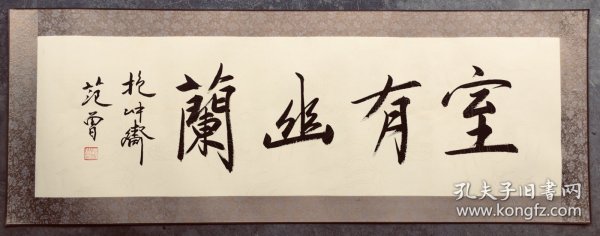 室有幽蘭
抱冲齋
范曾
孔夫子旧書网
www.kongfz.com